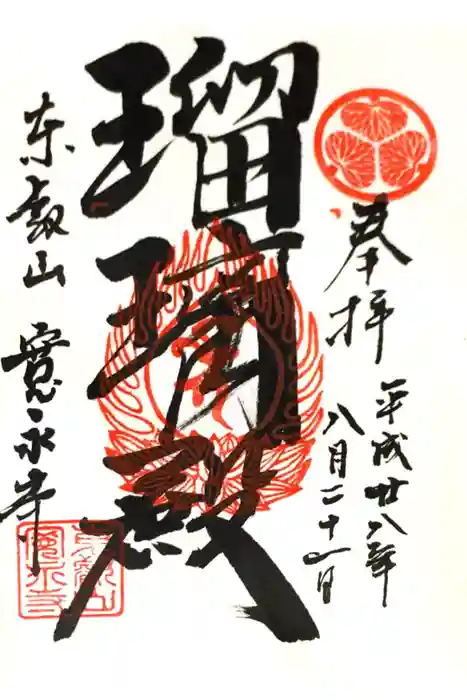 奉拝
平成廿八年
八月二十一日
瑠璃殿
東叡山 寛永寺